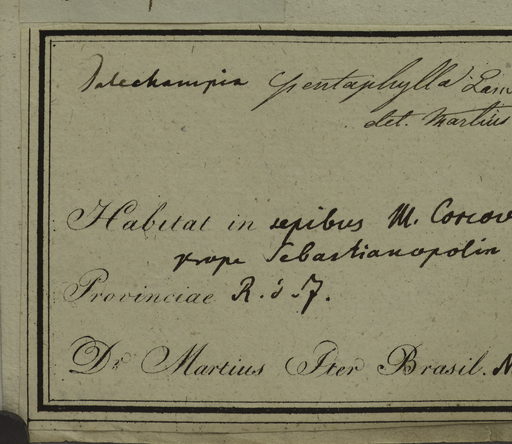 Dalechampia pentaphylla Lam
det. Martius
Habitat in sepibus M. Corcov
prope Sebastianopolin
Provinciae R. d. J.
Dr. Martius Iter Brasil. N